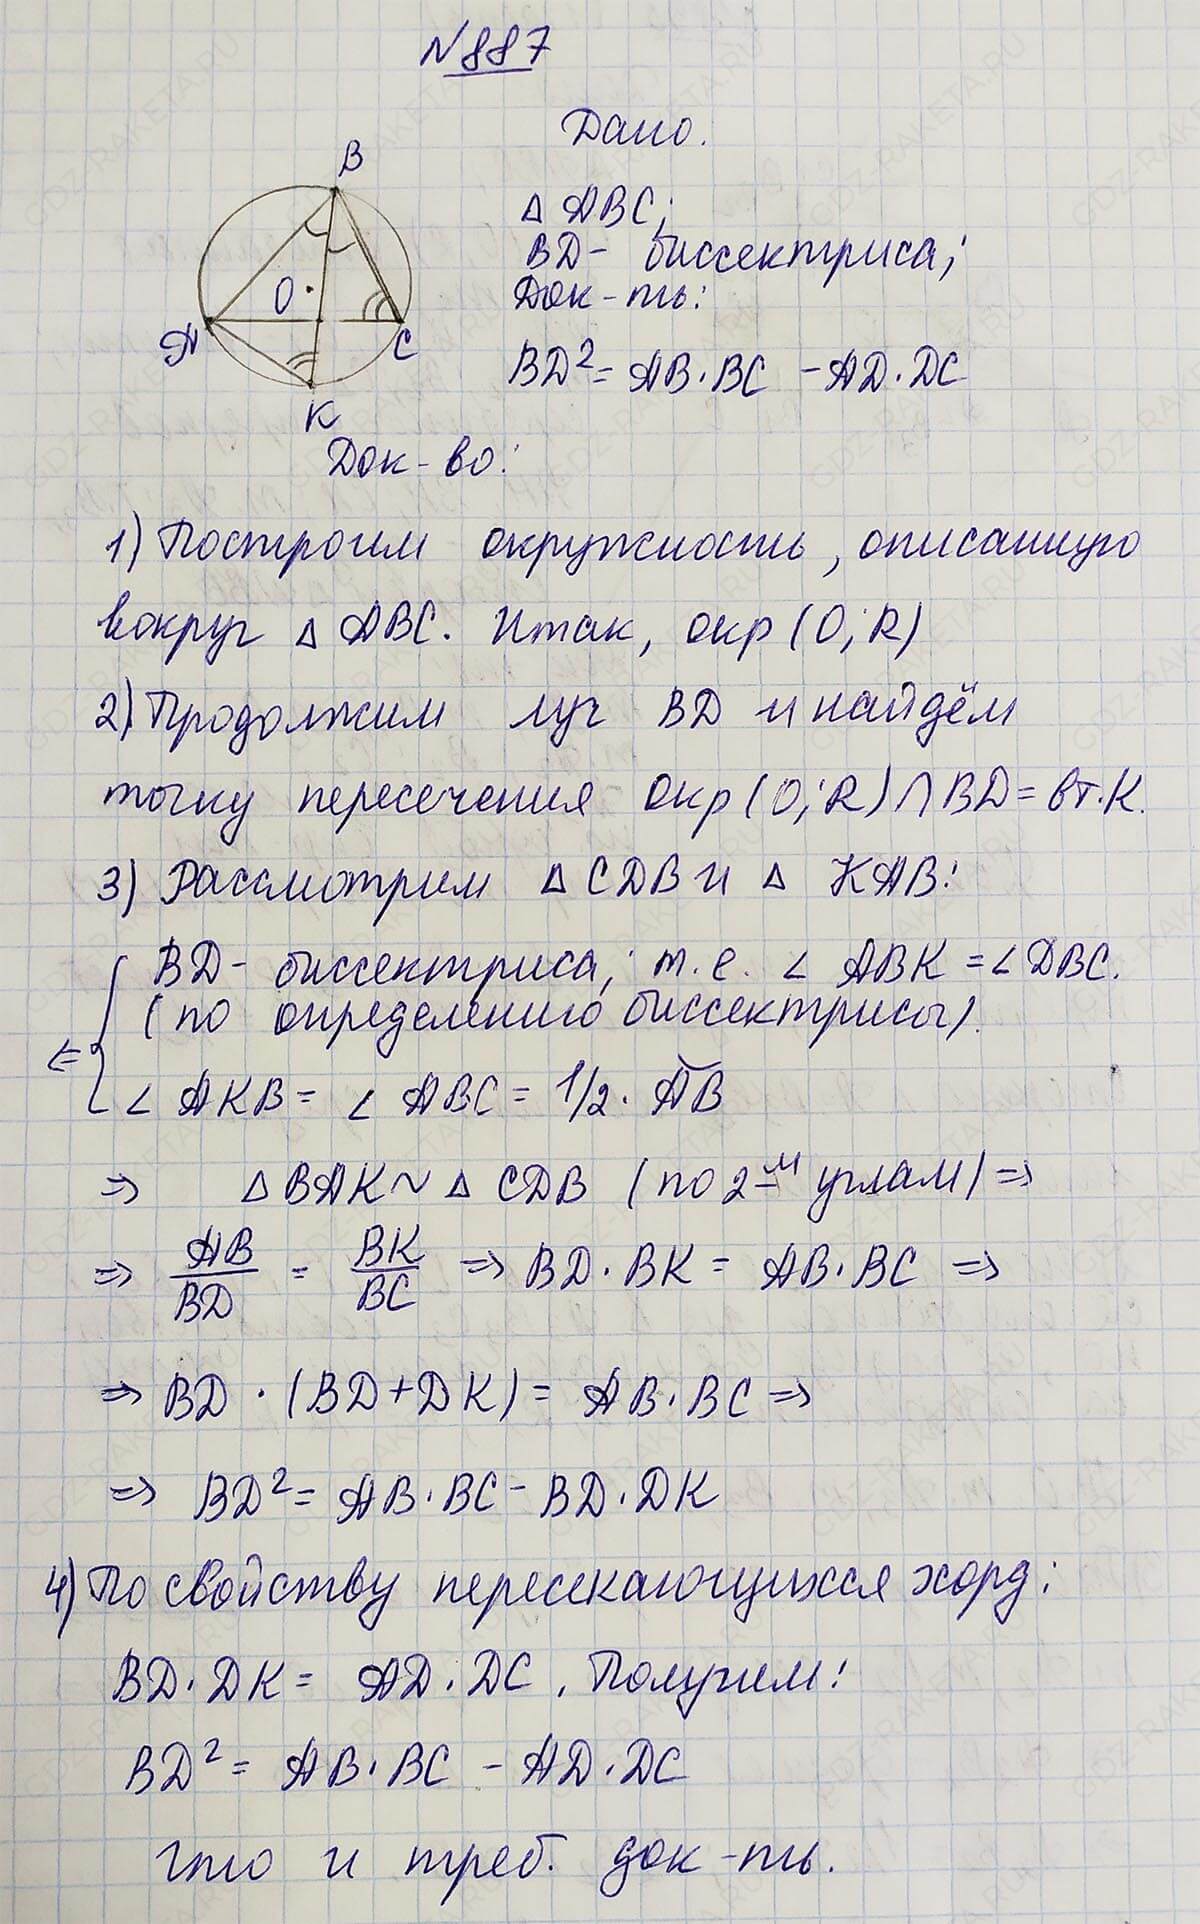 N887
Дано.
△ ABC;
BD- биссектриса;
Док-ть:
BD²= AB·BC -AD·DC
B
O
A
C
K
Док-во:
1) Построим окружность, описанную
вокруг △ ABC. Итак, окр (O; R)
2) Продолжим луч BD и найдём
точку пересечения окр (O; R) ∩ BD = в т. K.
3) Рассмотрим △ CDB и △ KAB:
BD- биссектриса; т.е. ∠ ABK = ∠DBC.
(по определению биссектрисы).
∠ AKB = ∠ ABC = 1/2 · ◡AB
⇐
⇒ △ BAK ~ △ CDB (по 2-м углам) ⇒
⇒ AB/BD = BK/BC ⇒ BD·BK = AB·BC ⇒
⇒ BD · (BD+DK) = AB·BC ⇒
⇒ BD² = AB·BC - BD·DK
4) По свойству пересекающихся хорд:
BD·DK = AD·DC. Получим:
BD² = AB·BC - AD·DC
что и треб. док-ть.
GDZ-RAKETA.RU